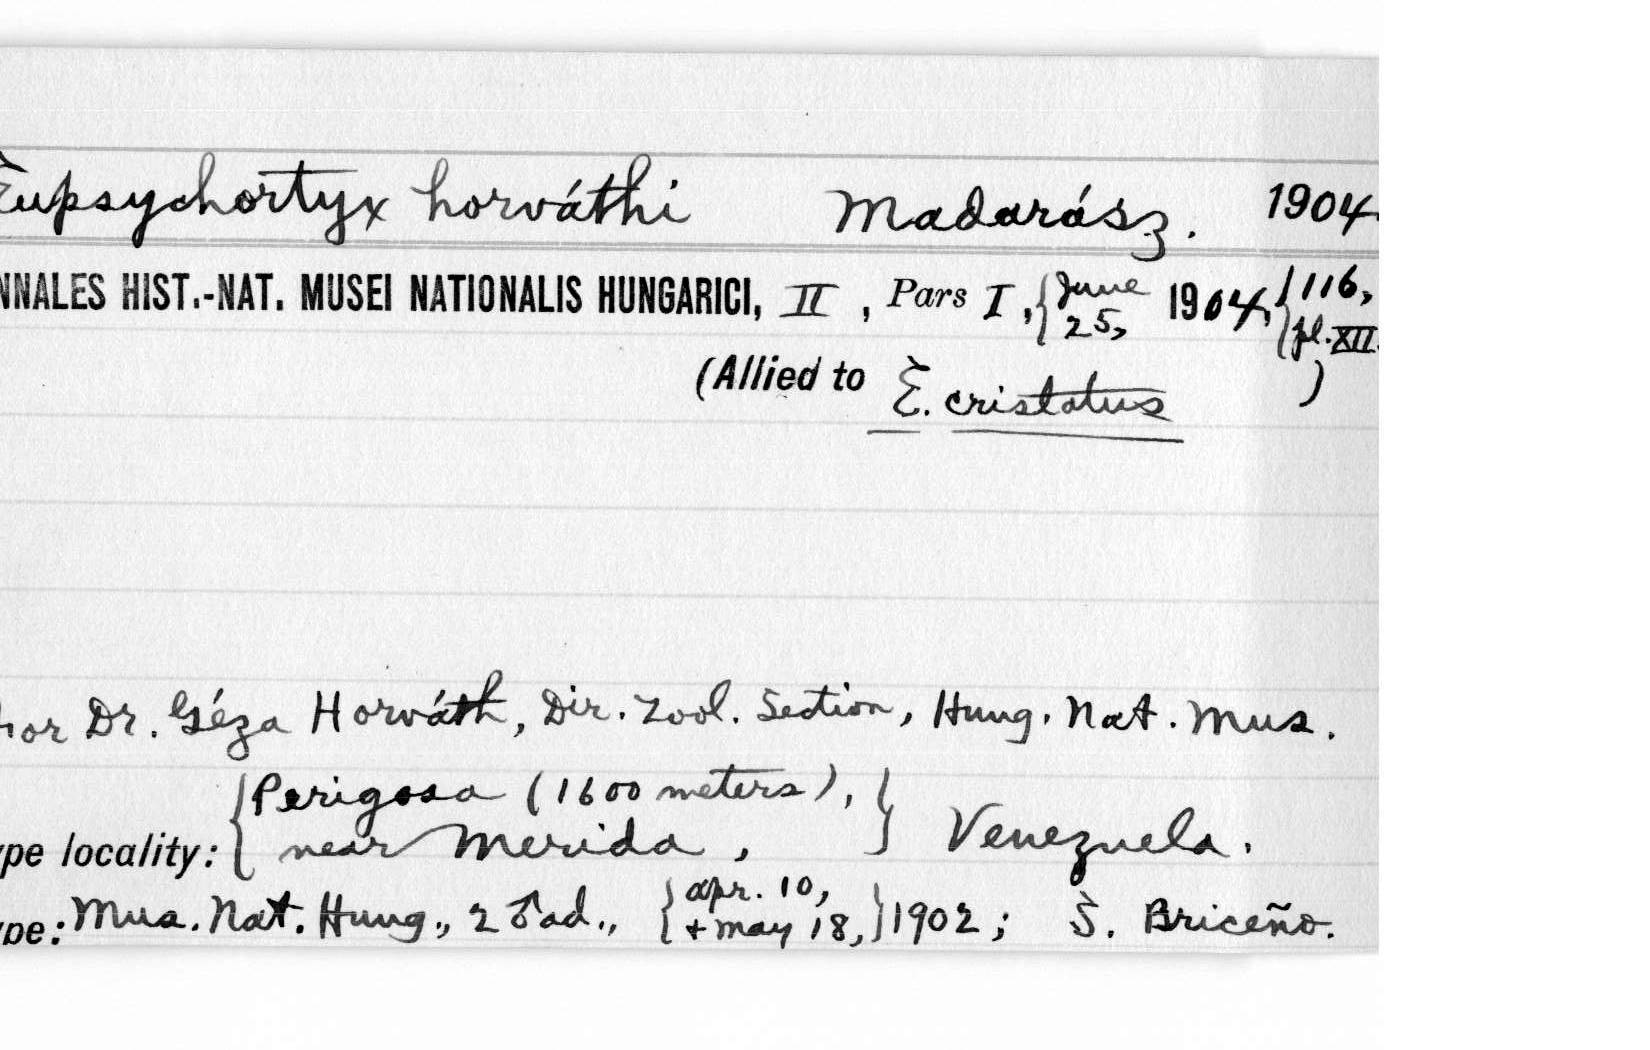 Eupsychortyx horváthi Madarász. 1904.
NNALES HIST.-NAT. MUSEI NATIONALIS HUNGARICI, II, Pars I, { June 25, 1904, { 116, pl. XII.
(Allied to E. cristatus )
hor Dr. Géza Horváth, Dir. Zool. Section, Hung. Nat. Mus.
ype locality: { Perigosa (1600 meters), near Merida, } Venezuela.
ype: Mus. Nat. Hung., 2 ♂ ad., { apr. 10, + may 18, } 1902; S. Briceño.